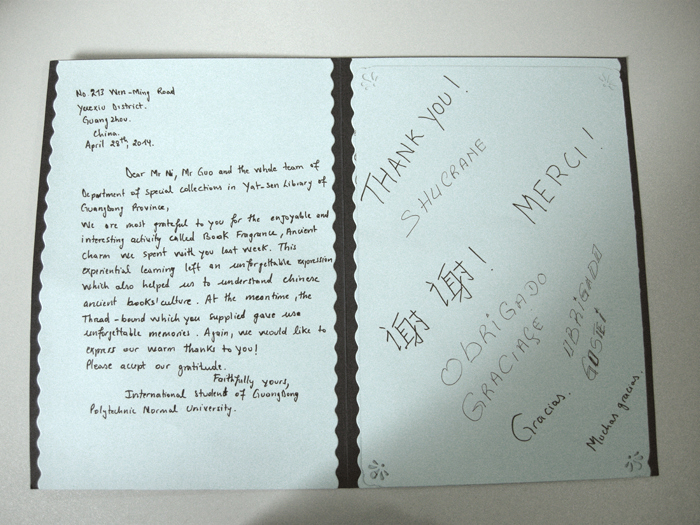 No. 213 Wen-Ming Road
Yuexiu District.
Guangzhou.
China.
April 28th, 2014.
Dear Mr Ni, Mr Guo and the whole team of
Department of special collections in Yat-sen Library of
Guangdong Province,
We are most grateful to you for the enjoyable and
interesting activity called Book Fragrance, Ancient
charm we spent with you last week. This
experiential learning left an unforgettable expression
which also helped us to understand chinese
ancient books' culture. At the meantime, the
Thread-bound which you supplied gave us
unforgettable memories. Again, we would like to
express our warm thanks to you!
Please accept our gratitude.
Faithfully yours,
International student of GuangDong
Polytechnic Normal University.
THANK YOU!
SHUCRANE
MERCI!
谢谢!
OBRIGADO
GRACIASE
OBRIGADO
GOSTEI
Gracias.
Muchas gracias.